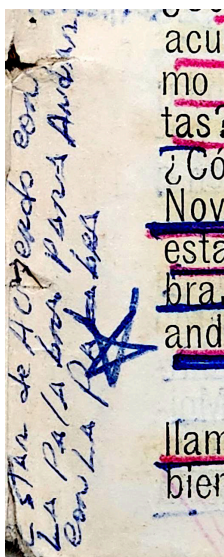 Estar de ACUERdo con
La Palabra PARA Andar
con LA PALabra
acu
mo
tas?
¿Có
Nov
esta
bra
and
llam
bien